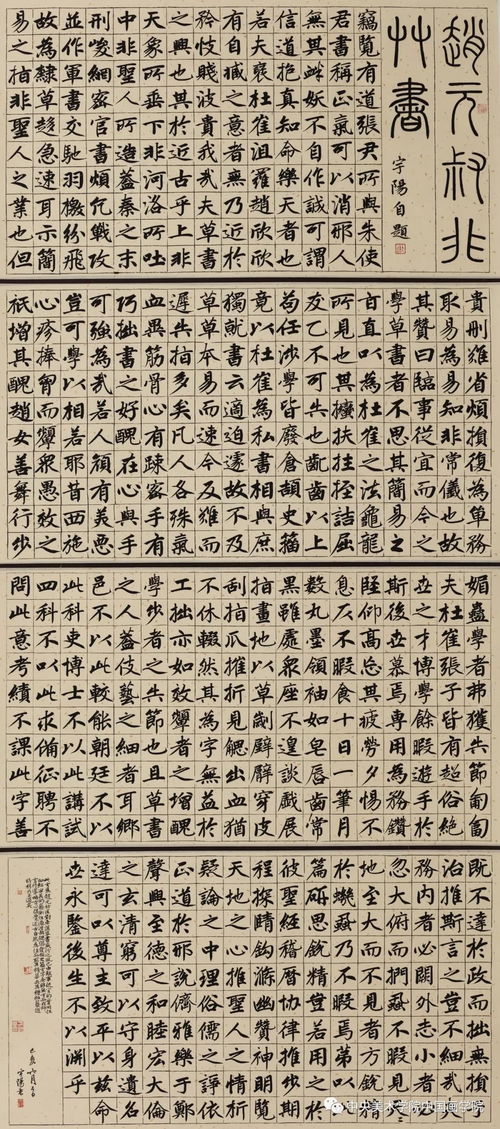 趙元叔非
艸書
宇陽自題
竊覽有道張君所與朱使
君書稱正氣可以消邪人
無其釁妖不自作誠可謂
信道抱真知命樂天者也
若夫褒杜崔沮羅趙欣欣
有自臧之意者無乃近於
矜忮賤彼貴我哉夫草書
之興也其於近古乎上非
天象所垂下非河洛所吐
中非聖人所造蓋秦之末
刑峻網密官書煩冗戰攻
並作軍書交馳羽檄紛飛
故為隸草趍急速耳示簡
易之指非聖人之業也但
貴刪難省煩損復為單務
取易為易知非常儀也故
其贊曰臨事從宜而今之
學草書者不思其簡易之
旨直以為杜崔之法龜龍
所見也其擩扶拄挃詰屈
犮乙不可失也齔齒以上
苟任涉學皆廢倉頡史籀
竟以杜崔為私書相與庶
獨就書云適迫遽故不及
草草本易而速今反難而
遲失指多矣凡人各殊氣
血異筋骨心有疎密手有
巧拙書之好醜在心與手
可強為哉若人顏有美惡
豈可學以相若耶昔西施
心疹捧胸而顰眾愚效之
祇增其醜趙女善舞行步
媚蠱學者弗獲失節匍匐
夫杜崔張子皆有超俗絕
世之才博學餘暇遊手於
斯後世慕焉專用為務鑽
堅仰高忘其疲勞夕惕不
息仄不暇食十日一筆月
數丸墨領袖如皂唇齒常
黑雖處眾座不遑談戲展
指畫地以草劌壁臂穿皮
刮指爪摧折見鰓出血猶
不休輟然其為字無益於
工拙亦如效顰者之增醜
學步者之失節也且草書
之人蓋伎藝之細者耳鄉
邑不以此較能朝廷不以
此科吏博士不以此講試
四科不以此求備征聘不
問此意考績不課此字善
既不達於政而拙無損於
治推斯言之豈不細哉夫
務內者必闕外志小者必
忽大俯而捫蝨不暇見天
地至大而不見者方銳精
於蟣蝨乃不暇焉第以此
篇研思銳精豈若用之於
彼聖經稽曆協律推步期
程探賾鈎深幽贊神明覽
天地之心推聖人之情析
疑論之中理俗儒之諍依
正道於邪說儕雅樂於鄭
聲興至德之和睦宏大倫
之玄清窮可以守身遺名
達可以尊主致平以茲命
世永鑒後生不以淵乎
宇陽書
中央美术学院中国画学院